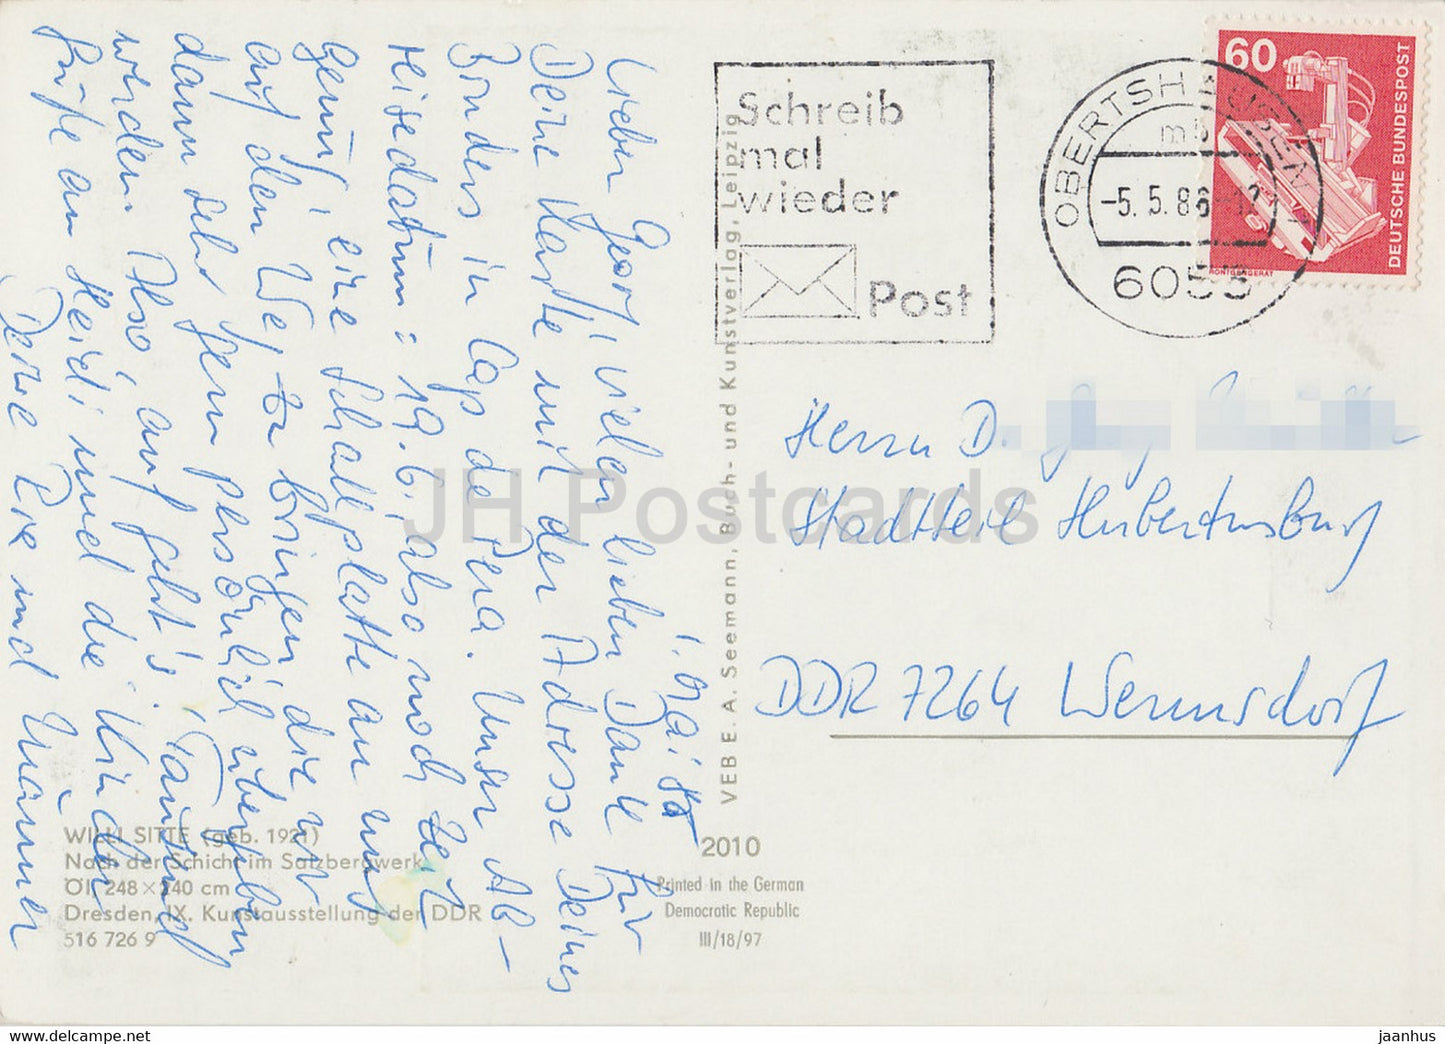 1. Mai 86
Lieber Georg, vielen lieben Dank für
Deine Karte mit der Adresse Deines
Bruders in Cap de Pera. Unser Ab-
reisedatum: 19.6., also noch Zeit
genug, eine Schallplatte an uns
auf den Weg zu bringen, die wir
dann sehr gern persönlich übergeben
werden. Also auf geht's. Tausend
Grüße an Heidi und die Kinder
Deine Rose und Männer
WILLI SITTE (geb. 1921)
Nach der Schicht im Salzbergwerk
Öl, 248×240 cm
Dresden, IX. Kunstausstellung der DDR
516 726 9
VEB E. A. Seemann, Buch- und Kunstverlag, Leipzig
2010
Printed in the German
Democratic Republic
III/18/97
Schreib
mal
wieder
Post
OBERTSHAUSEN
mb
-5.5.86-12
6053
60
DEUTSCHE BUNDESPOST
RÖNTGENGERÄT
Herrn D.
Stadtteil Hubertusburg
DDR 7264 Wermsdorf
JH Postcards
https://www.jh-postcards.com
jaanhus